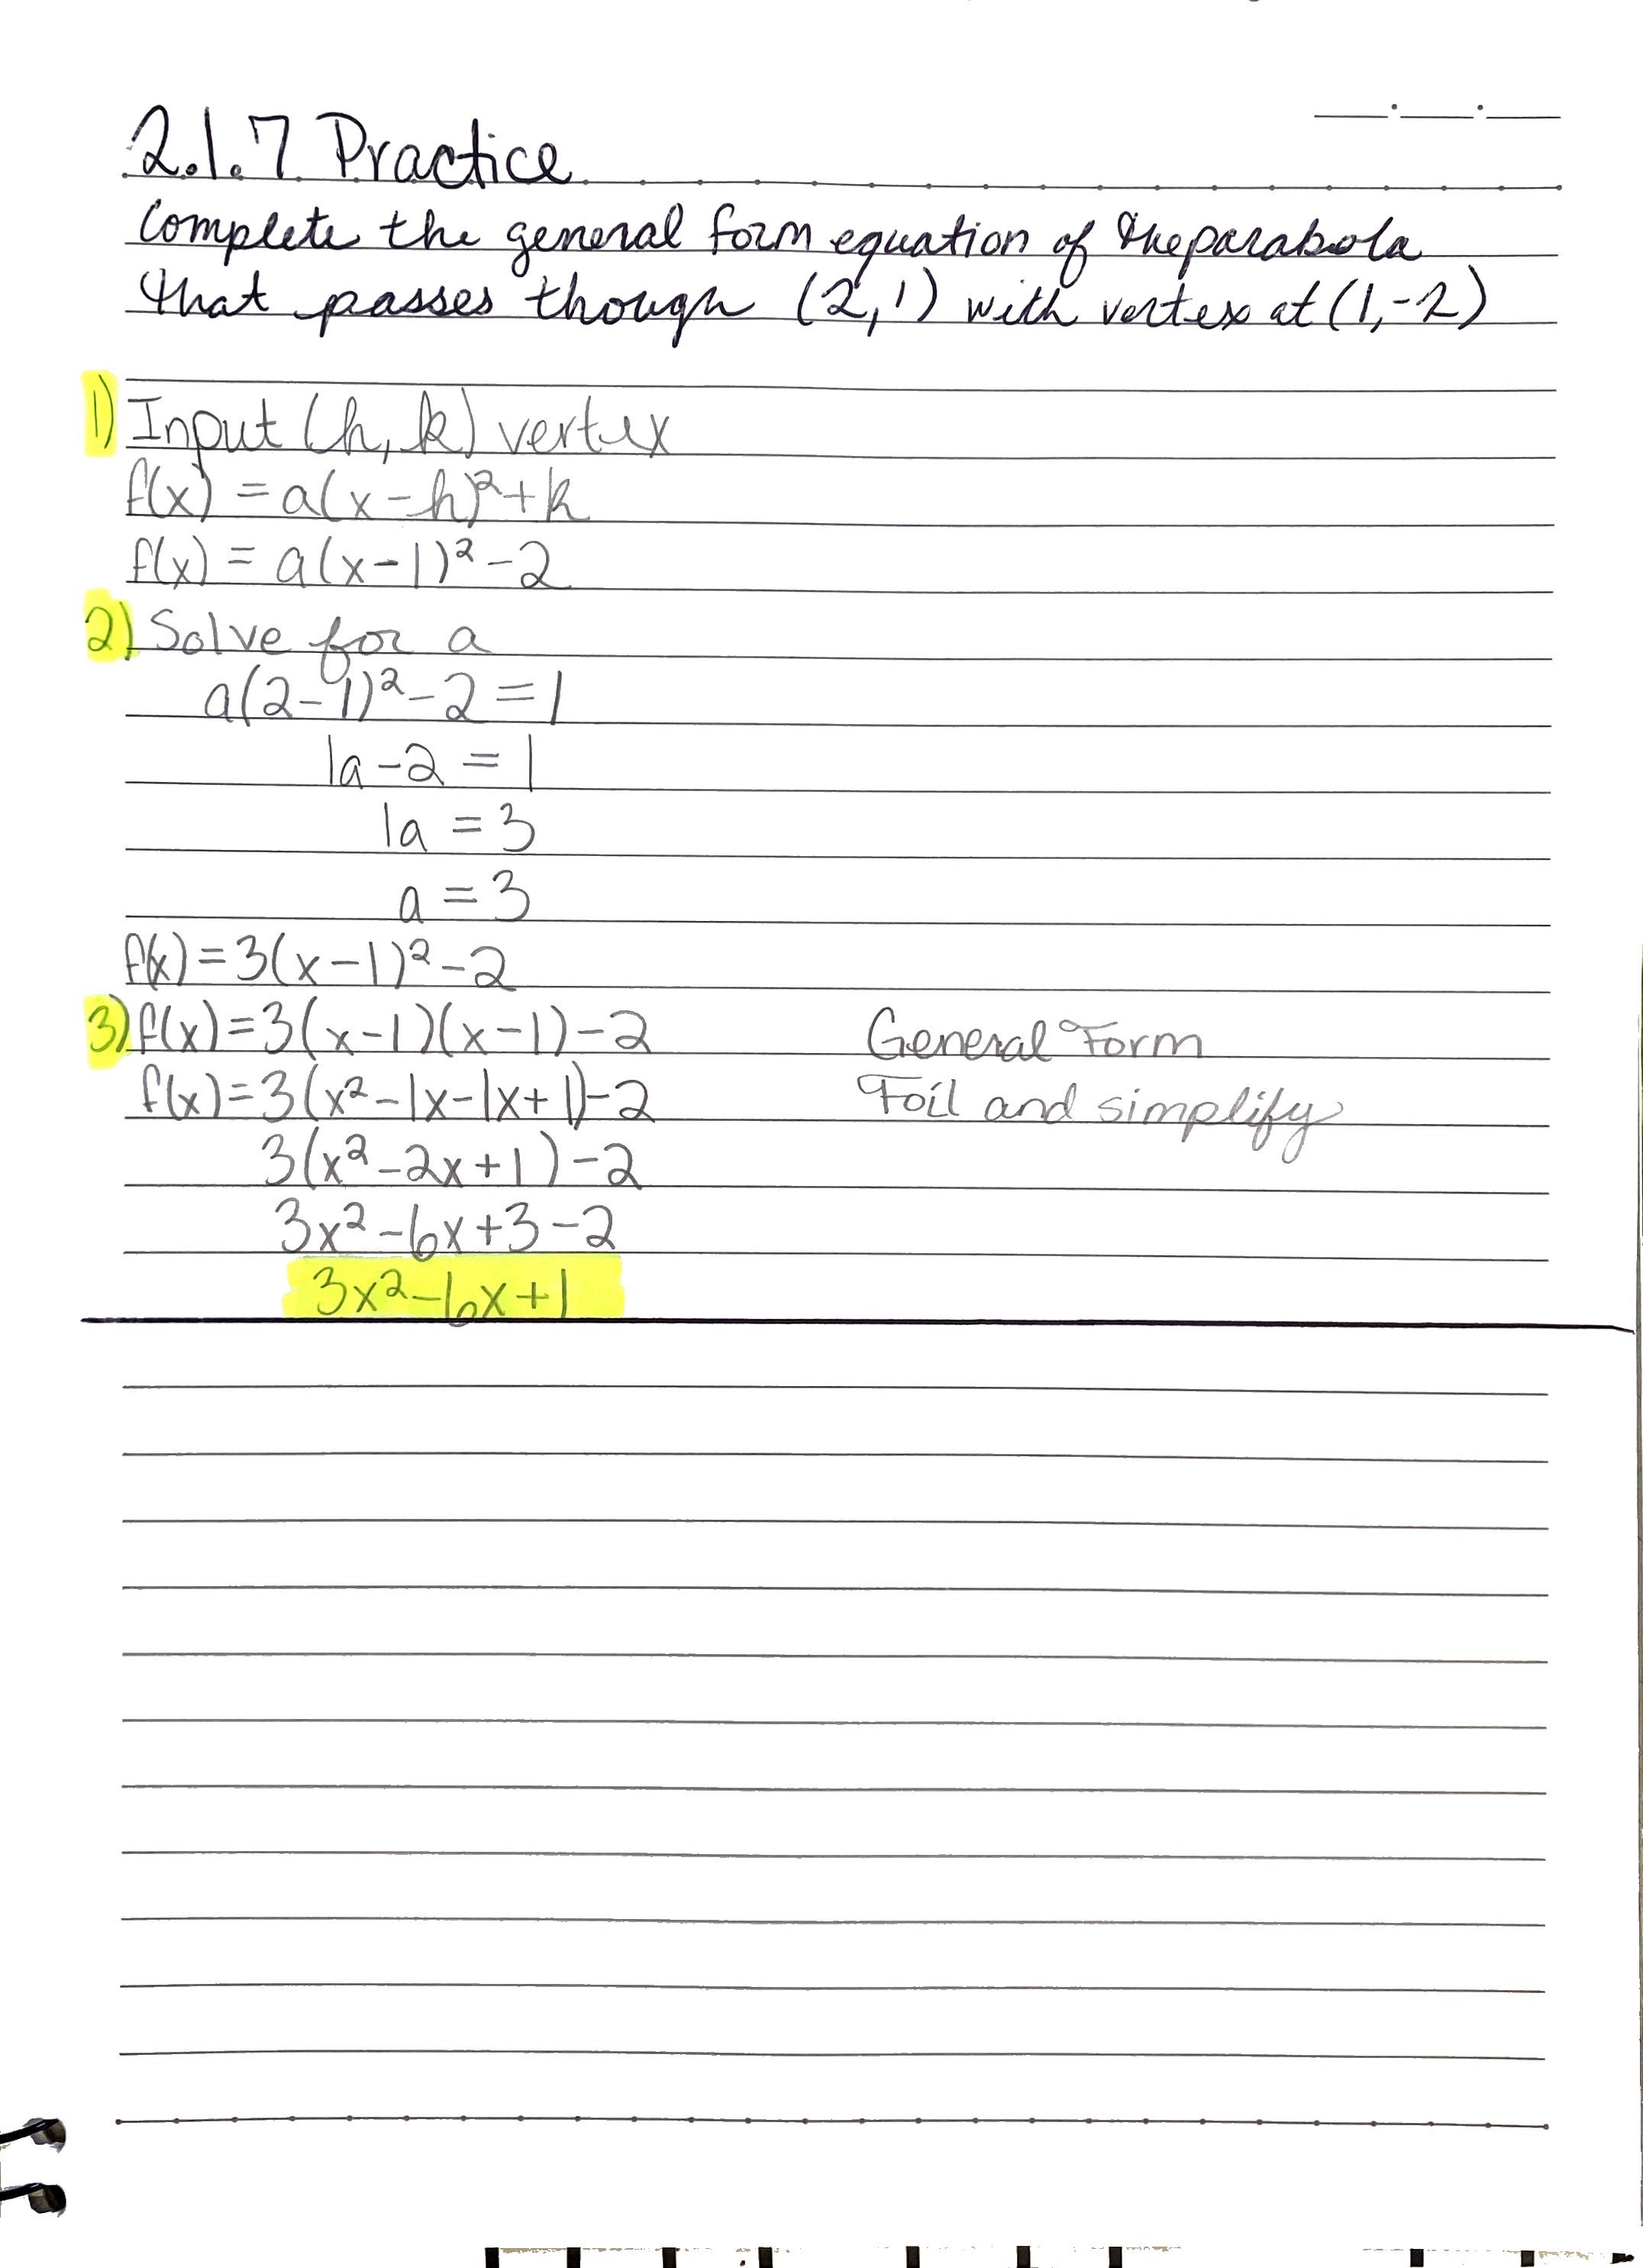 2.1.7 Practice
Complete the general form equation of the parabola
that passes though (2,1) with vertex at (1,-2)
1) Input (h, k) vertex
f(x) = a(x-h)²+k
f(x) = a(x-1)²-2
2) Solve for a
a(2-1)²-2=1
1a-2=1
1a=3
a=3
f(x)=3(x-1)²-2
3) f(x)=3(x-1)(x-1)-2 General Form
f(x)=3(x²-1x-1x+1)-2 Foil and simplify
3(x²-2x+1)-2
3x²-6x+3-2
3x²-6x+1